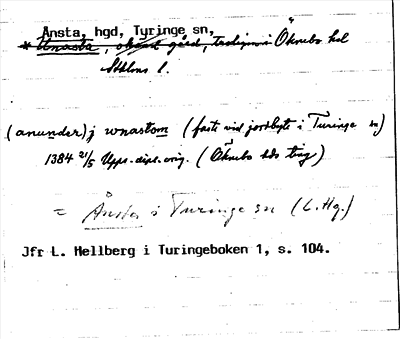 Ansta, hgd, Tyringe sn,
* Unasta, okänd gård, trolign i Öknebo hd
Sthlms l.
(anunder) j wnastom (faste vid jordbyte i Turinge sn)
1384 21/5 Upps. dipl. orig. (Öknebo hds ting)
= Ånsta i Turinge sn (L. Hg.)
Jfr L. Hellberg i Turingeboken 1, s. 104.